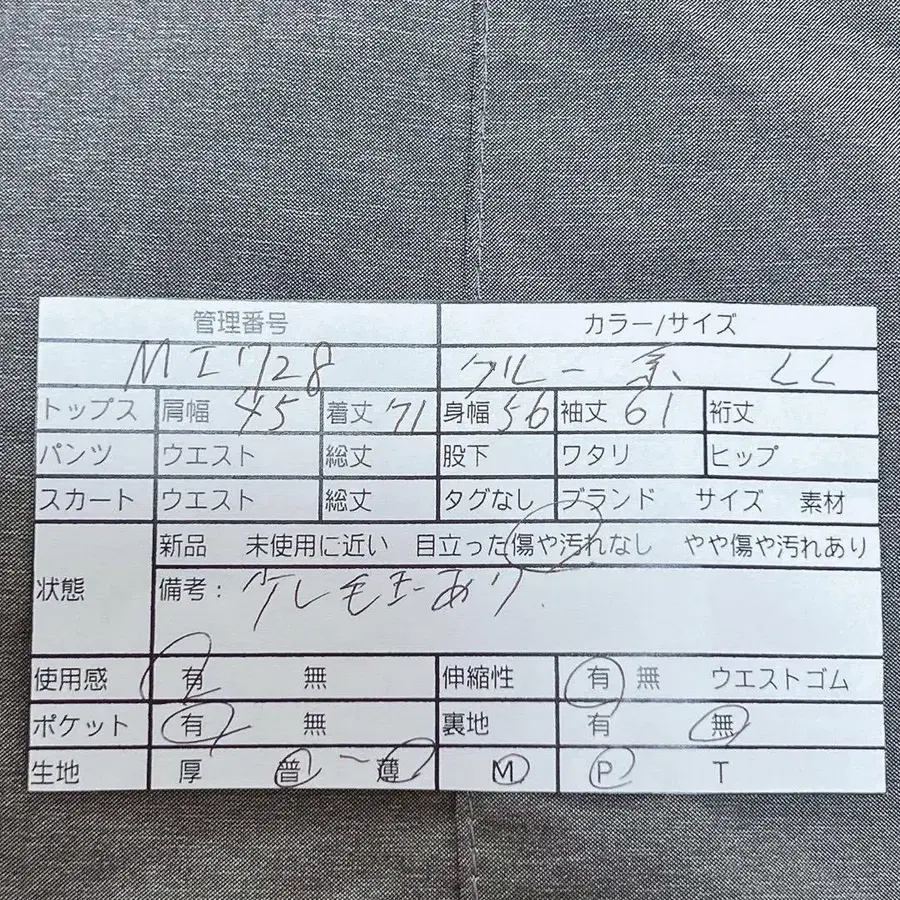 管理番号 カラー/サイズ
MI728 グレー系 LL
トップス 肩幅 45 着丈 71 身幅 56 袖丈 61 裄丈
パンツ ウエスト 総丈 股下 ワタリ ヒップ
スカート ウエスト 総丈 タグなし ブランド サイズ 素材
新品 未使用に近い 目立った傷や汚れなし やや傷や汚れあり
状態 備考: 毛玉あり
使用感 有 無 伸縮性 有 無 ウエストゴム
ポケット 有 無 裏地 有 無
生地 厚 普 ~ 薄 M P T